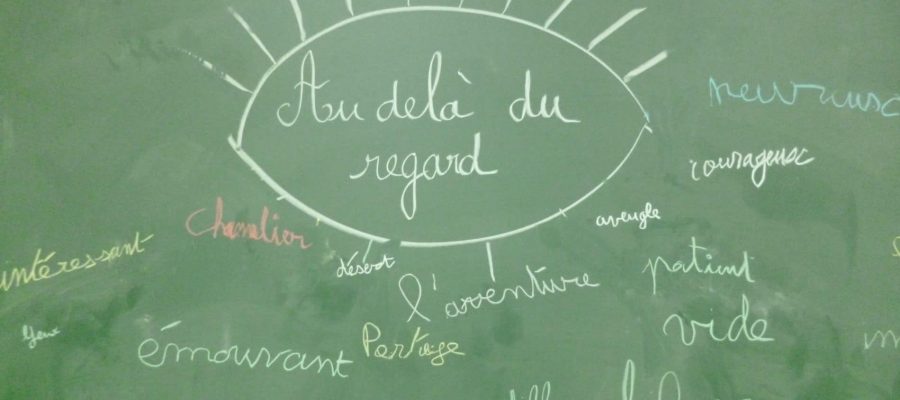 Au delà du
regard
courageux
aveugle
Chamelier
intéressant
désert
l'aventure
patient
vide
Yeux
émouvant
Partage